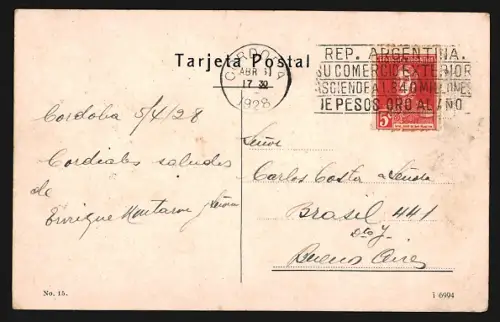 Tarjeta Postal
CORDOBA
ABR
17 30
1928
REP. ARGENTINA.
SU COMERCIO EXTERIOR
ASCIENDE A 1.840 MILLONES
DE PESOS ORO AL AÑO
5
Cordoba 5/4/28
Cordiales saludos
de
Enrique y Señora
Señor
Carlos Costa y Señora
Brasil 441
Dto J
Buenos Aires
No. 15.
i 6994